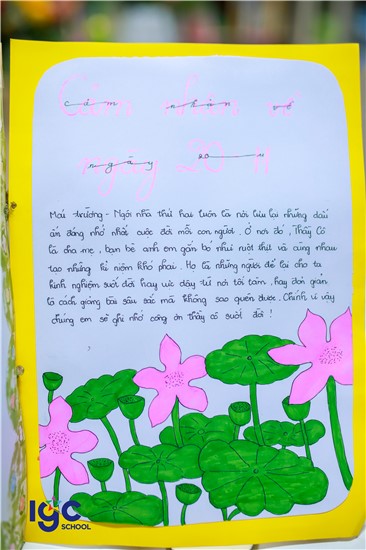 Cảm nhận về
ngày 20 - 11
Mái trường - Ngôi nhà thứ hai luôn là nơi lưu lại những dấu
ấn đáng nhớ nhất cuộc đời mỗi con người. Ở nơi đó, Thầy Cô
là cha mẹ, bạn bè anh em gắn bó như ruột thịt và cùng nhau
tạo những kỉ niệm khó phai. Họ là những người để lại cho ta
kinh nghiệm suốt đời hay vực dậy từ nơi tối tăm, hay đơn giản
là cách giảng bài sâu sắc mà không sao quên được. Chính vì vậy
chúng em sẽ ghi nhớ công ơn thầy cô suốt đời !
IGC
SCHOOL